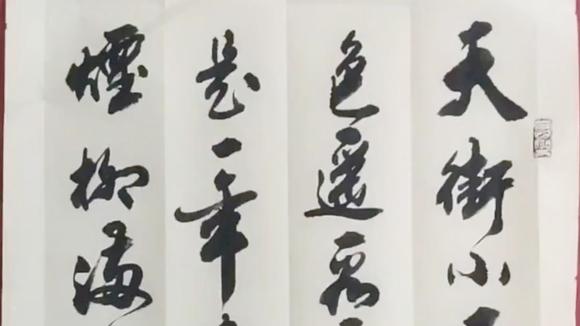 天街小
色遥看
是一年
煙柳滿